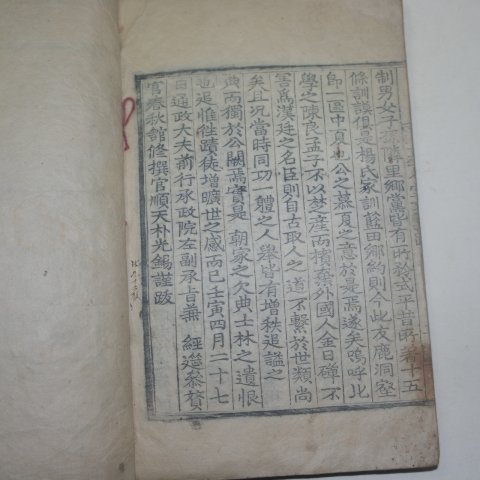 制男女子孫隣里鄕黨皆有所矜式平昔所著十五
條訓謨倡云楊氏家訓藍田鄕約則今此友鹿洞壑
即一區中夏也公之慕夏之意於是焉遂矣嗚呼北
學之陳良孟子不以楚産而擯棄外國人金日磾不
害爲漢廷之名臣則自古取人之道不繫於世類尙
矣且况當時同功一體之人擧皆有增秩追謚之
典而獨於公闕焉實是 朝家之欠典士林之遺恨
也追惟往蹟徒增曠世之感而已壬寅四月二十七
日通政大夫前行承政院左副承旨兼 經筵參贊
官春秋館修撰官順天朴光錫謹跋